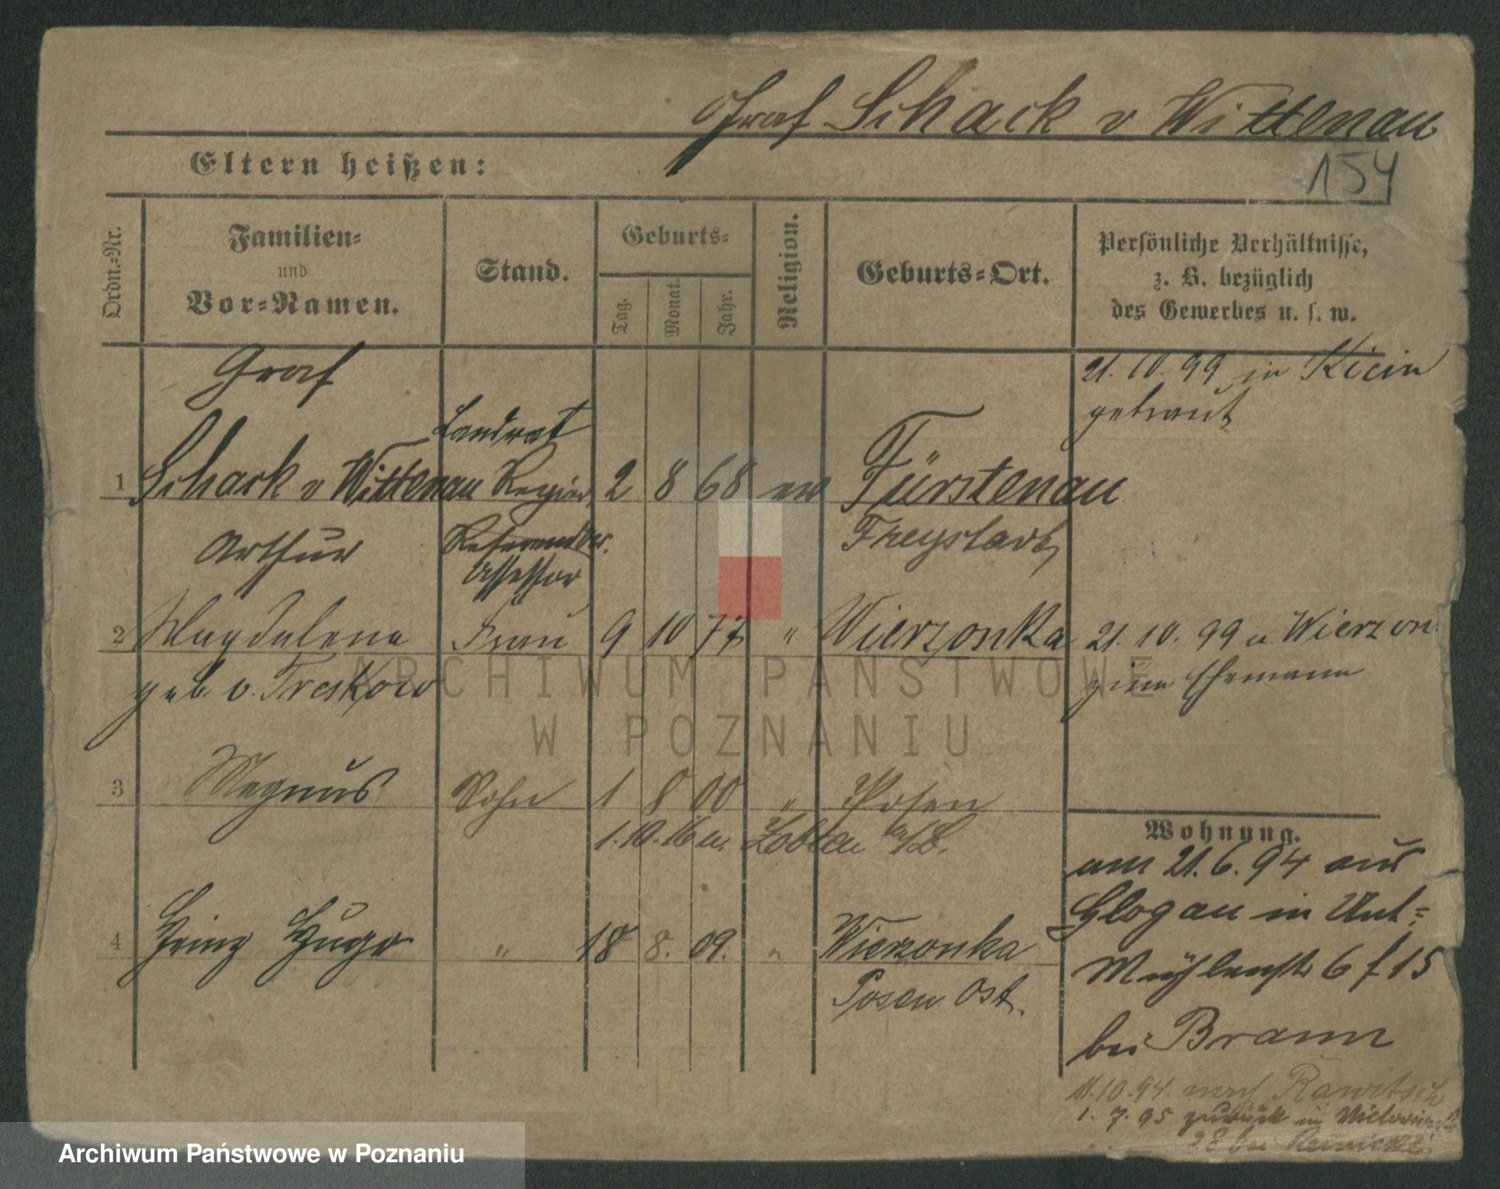 Graf Schack v Wittenau
Eltern heißen:
154
Ordn.-Nr.
Familien-
und
Vor-Namen.
Stand.
Geburts-
Tag.
Monat.
Jahr.
Religion.
Geburts-Ort.
Persönliche Verhältnisse,
z. B. bezüglich
des Gewerbes u. s. w.
Graf
21. 10. 99 in Kicin
getraut
Landrat
1 Schack v Wittenau Regier. 2 8 68 ev Fürstenau
Arthur Referendar. Freystadt
Assessor
2 Magdalena Frau 9 10 77 " Wierzonka 21. 10. 99 v. Wierzon.
geb v. Treskow zum Ehemann
3 Magnus Sohn 1 8 00 " Posen
1. 10. 16 n. Lobten
Wohnung.
am 21. 6. 94 aus
Glogau in Unt-
4 Heinz Hugo " 18 8. 09. " Wierzonka
Mühlenstr 6 f 15
Posen Ost.
bei Braun
11.10.94. nach Rawitsch
1. 7. 95 zurück in Victoria
28 bei
ARCHIWUM PAŃSTWOWE
W POZNANIU
Archiwum Państwowe w Poznaniu